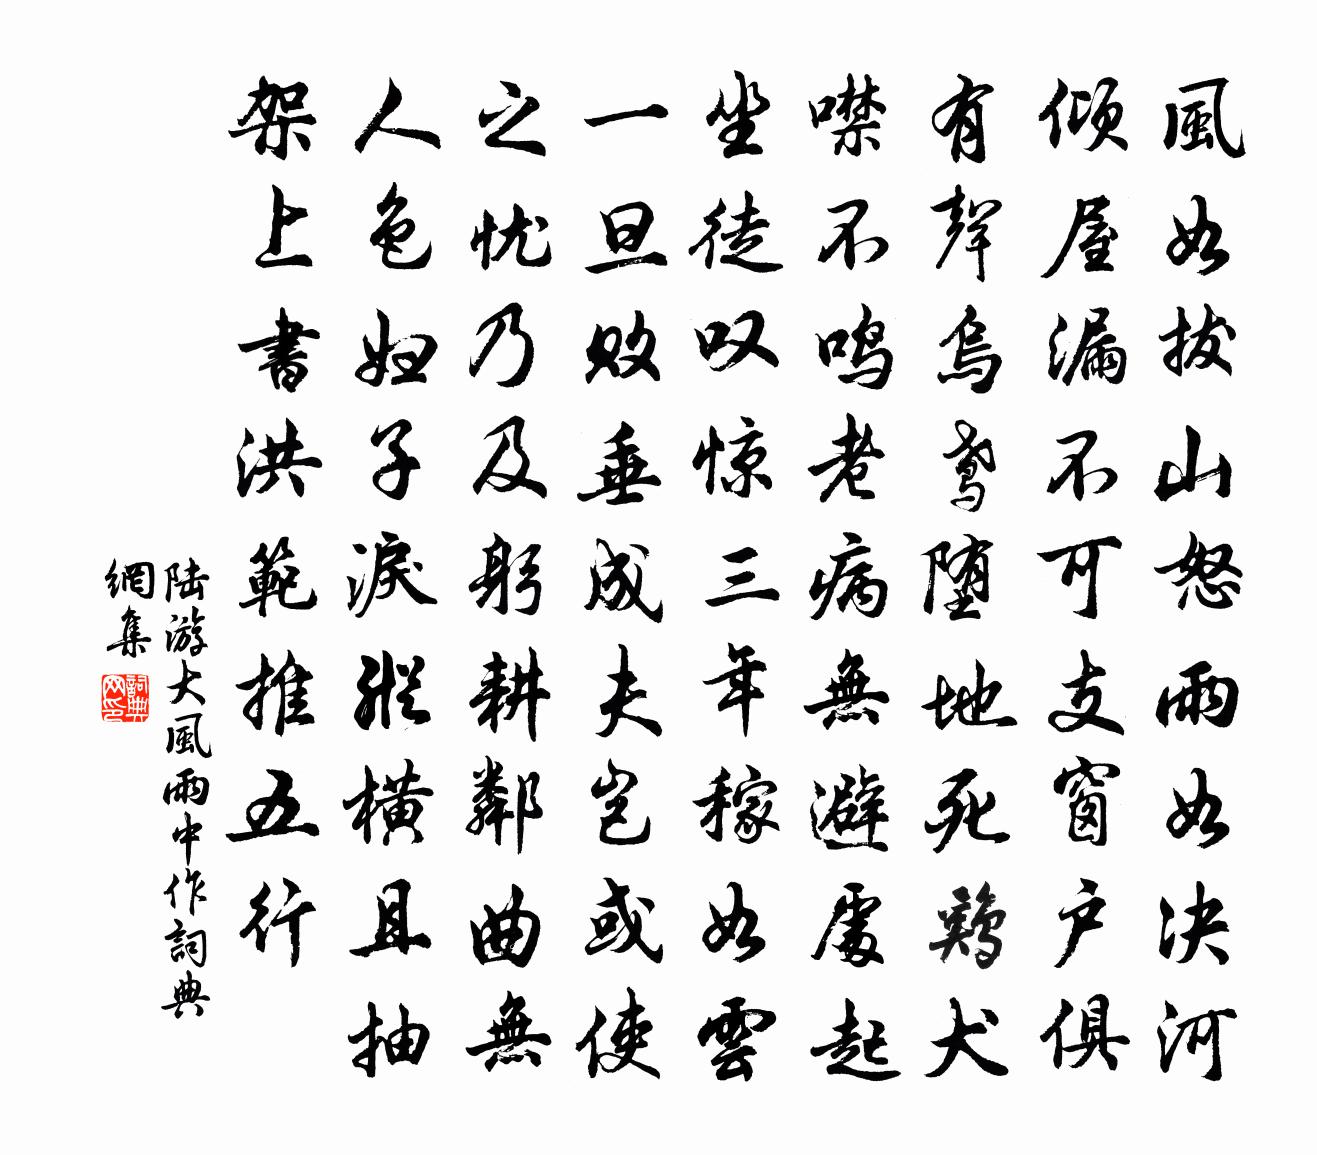 風如拔山怒雨如决河
倾屋漏不可支窗户俱
有聲烏鸢堕地死鷄犬
噤不鸣老病無避處起
坐徒叹惊三年稼如雲
一旦败垂成夫岂或使
之忧乃及躬耕鄰曲無
人色妲子淚縱橫且抽
架上書洪範推五行
陆游大風雨中作詞典
網集
詞典
网印